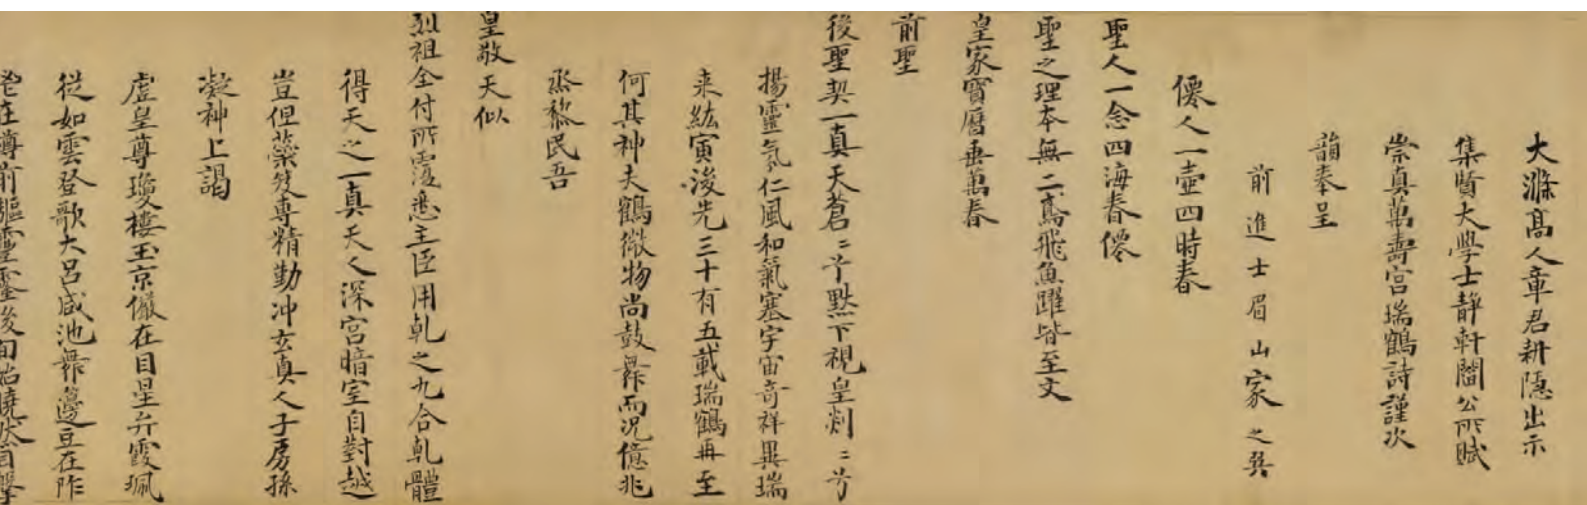 大滌高人章君耕隱出示
集賢大學士靜軒閻公所賦
崇真萬壽宮瑞鶴詩謹次
韻奉呈
前進士眉山家之巽
僊人一壺四時春
聖人一念四海春僊
聖之理本無二鳶飛魚躍皆至文
皇家寶曆垂萬春
前聖
後聖契一真天蒼〻兮默下視皇剡〻兮
揚靈氛仁風和氣塞宇宙奇祥異瑞
来紘寅後先三十有五載瑞鶴再至
何其神夫鶴微物尚鼓舞而況億兆
烝黎民吾
皇敬天似
烈祖全付所覆悉主臣用乹之九合乹體
得天之一真天人深宮暗室自對越
豈但蘂笈專精勤冲玄真人子房孫
凝神上謁
虛皇尊瓊樓玉京儼在目星弁霞珮
從如雲登歌大呂咸池舞籩豆在阼
在尊前